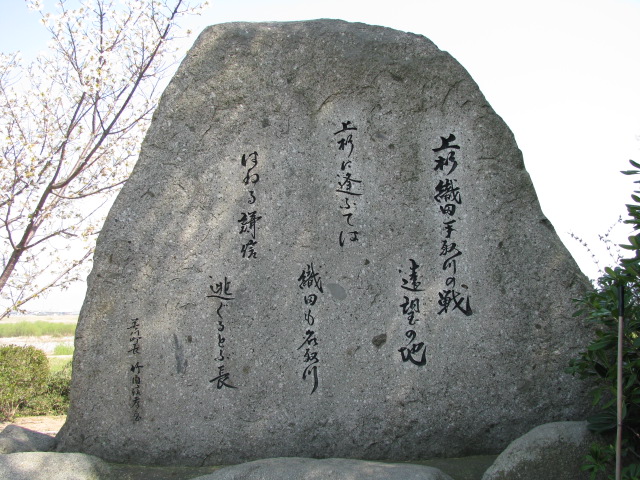 上杉織田手取川の戦
遺望の地
上杉に逢ふては
織田も名取川
はねる謙信
逃ぐるとぶ長